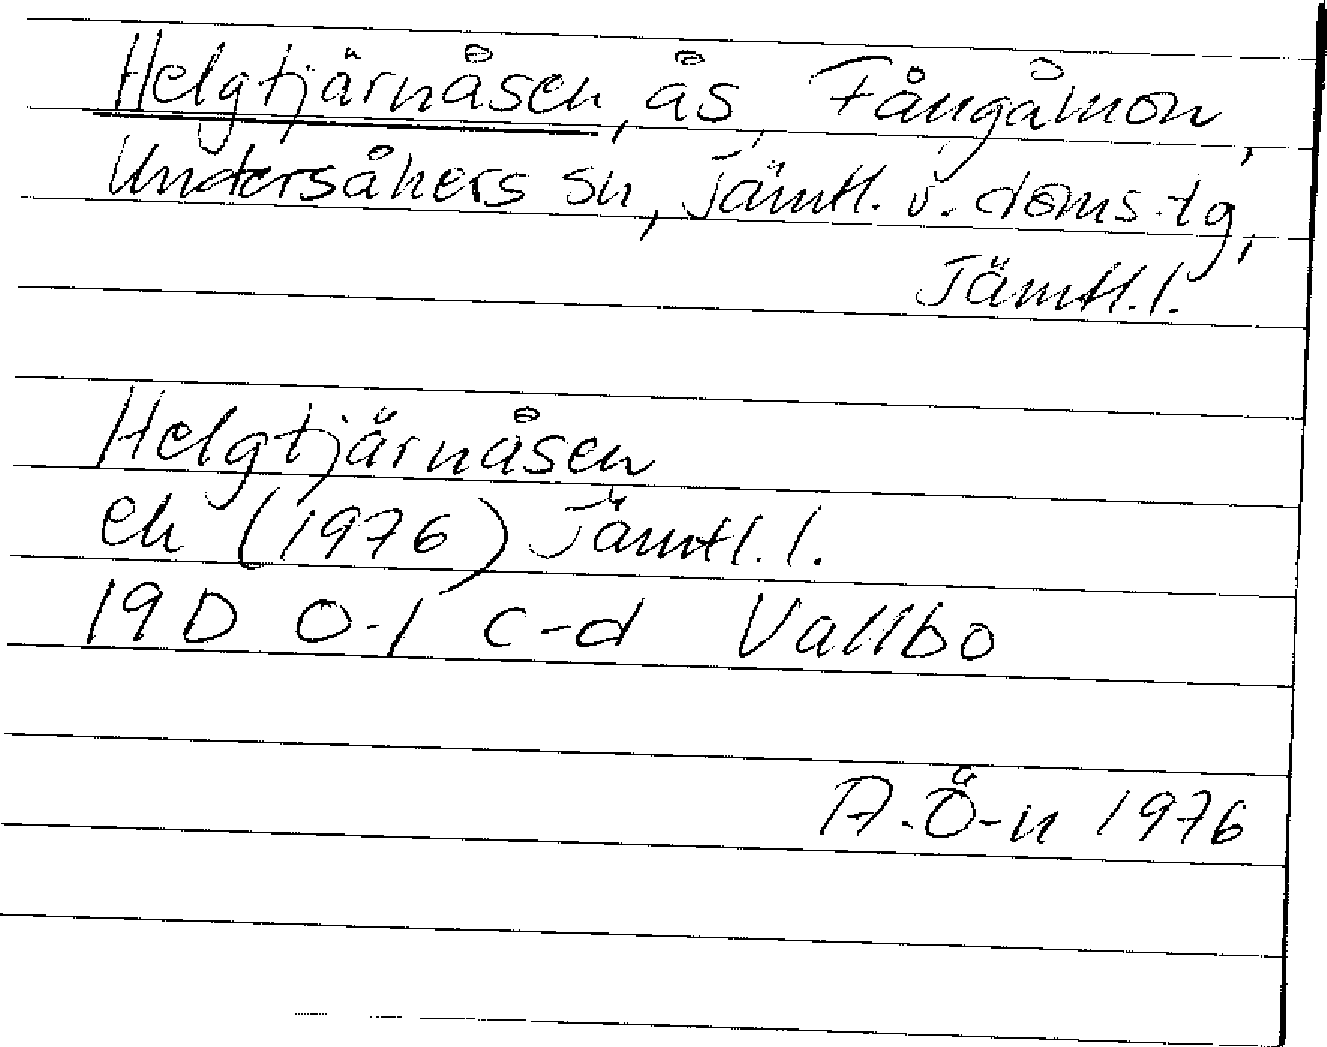 Helgtjärnåsen, ås, Fångåmon,
Undersåkers sn, Jämtl. v. doms.tg,
Jämtl. l.
Helgtjärnåsen
ek (1976) Jämtl. l.
19D 0-1 c-d Vallbo
A. Ö-n 1976